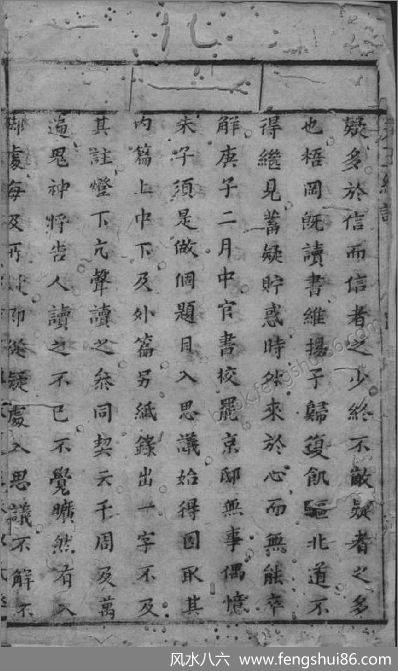 疑多於信而信者之少終不敵疑者之多
也梧岡旣讀書維揚予歸復飢驅北道不
得繼見蓄疑貯惑時徃來於心而無能卒
解庚子二月中官書校罷京邸無事偶憶
朱子須是做個題目入思議始得因取其
内篇上中下及外篇另紙錄出一字不及
其註燈下亢聲讀之叅同契云千周及萬
遍鬼神將告人讀之不已不覺曠然有入
處每及再 卽從疑處入思議不解不
风水八六 www.fengshui86.com
book.fengshui86.com